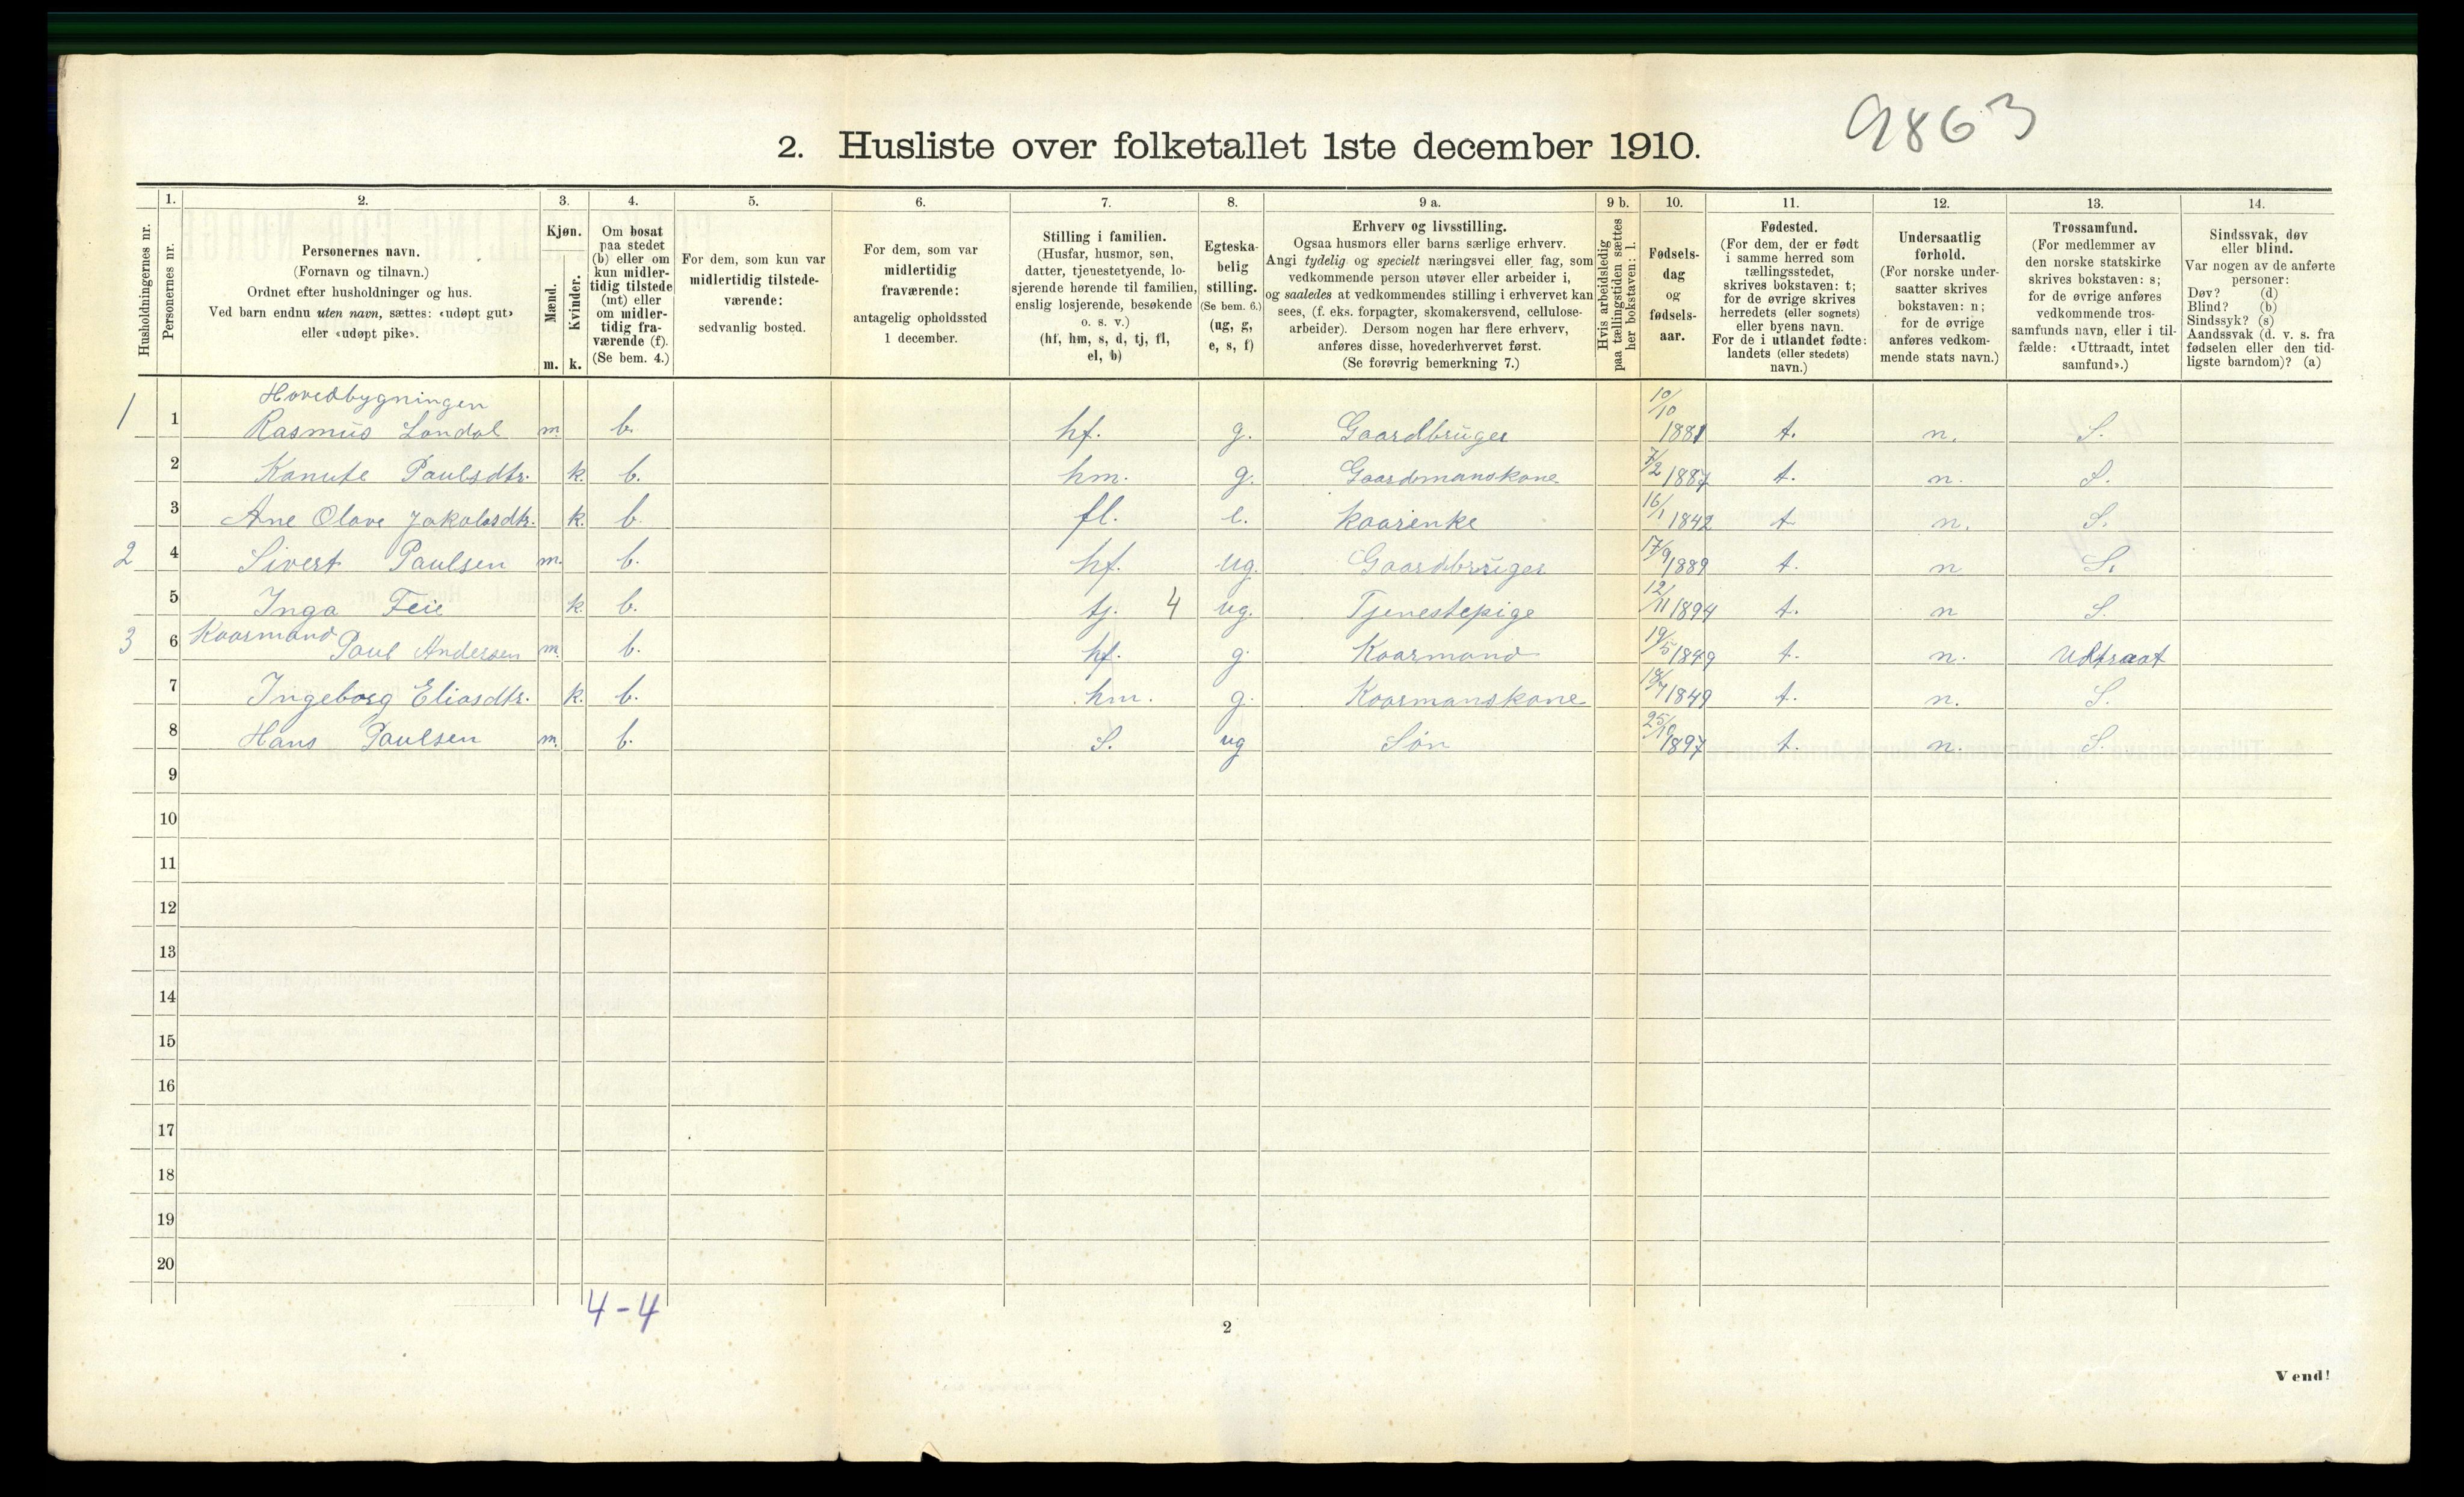 9863
2. Husliste over folketallet 1ste december 1910.
Husholdningernes nr.
1.
Personernes nr.
2.
Personernes navn.
(Fornavn og tilnavn.)
Ordnet efter husholdninger og hus.
Ved barn endnu uten navn, sættes: «udøpt gut»
eller «udøpt pike».
3.
Kjøn.
Mænd.
Kvinder.
m. k.
4.
Om bosat
paa stedet
(b) eller om
kun midler-
tidig tilstede
(mt) eller
om midler-
tidig fra-
værende (f).
(Se bem. 4.)
5.
For dem, som kun var
midlertidig tilstede-
værende:
sedvanlig bosted.
6.
For dem, som var
midlertidig
fraværende:
antagelig opholdssted
1 december.
7.
Stilling i familien.
(Husfar, husmor, søn,
datter, tjenestetyende, lo-
sjerende hørende til familien,
enslig losjerende, besøkende
o. s. v.)
(hf, hm, s, d, tj, fl,
el, b)
8.
Egteska-
belig
stilling.
(Se bem. 6.)
(ug, g,
e, s, f)
9 a.
Erhverv og livsstilling.
Ogsaa husmors eller barns særlige erhverv.
Angi tydelig og specielt næringsvei eller fag, som
vedkommende person utøver eller arbeider i,
og saaledes at vedkommendes stilling i erhvervet kan
sees, (f. eks. forpagter, skomakersvend, cellulose-
arbeider). Dersom nogen har flere erhverv,
anføres disse, hovederhvervet først.
(Se forøvrig bemerkning 7.)
9 b.
Hvis arbeidsledig
paa tællingstiden sættes
her bokstaven: l.
10.
Fødsels-
dag
og
fødsels-
aar.
11.
Fødested.
(For dem, der er født
i samme herred som
tællingsstedet,
skrives bokstaven: t;
for de øvrige skrives
herredets (eller sognets)
eller byens navn.
For de i utlandet fødte:
landets (eller stedets)
navn.)
12.
Undersaatlig
forhold.
(For norske under-
saatter skrives
bokstaven: n;
for de øvrige
anføres vedkom-
mende stats navn.)
13.
Trossamfund.
(For medlemmer av
den norske statskirke
skrives bokstaven: s;
for de øvrige anføres
vedkommende tros-
samfunds navn, eller i til-
fælde: «Uttraadt, intet
samfund».)
14.
Sindssvak, døv
eller blind.
Var nogen av de anførte
personer:
Døv? (d)
Blind? (b)
Sindssyk? (s)
Aandssvak (d. v. s. fra
fødselen eller den tid-
ligste barndom)? (a)
Hovedbygningen
1 1 Rasmus Londal m. b. hf. g. Gaardbruger 10/10 1881 t. n. S.
2 Kanute Paulsdtr. k. b. hm. g. Gaardmanskone 7/2 1887 t. n. S.
3 Ane Olave Jakobsdtr. k. b. fl. e. kaarenke 16/1 1842 t. n. S.
2 4 Sivert Paulsen m. b. hf. ug. Gaardbruger 17/9 1889 t. n S.
5 Inga Feie k. b. tj. 4 ug. Tjenestepige 12/11 1894 t. n S.
3 6 Kaarmand Paul Andersen m. b. hf. g. Kaarmand 19/5 1849 t. n. Udtraat
7 Ingeborg Eliasdtr. k. b. hm. g. Kaarmanskone 1849 t. n. S.
8 Hans Paulsen m. b. S. ug Søn 25/10 1897 t. n. S.
9
10
11
12
13
14
15
16
17
18
19
20
4-4
2
Vend!